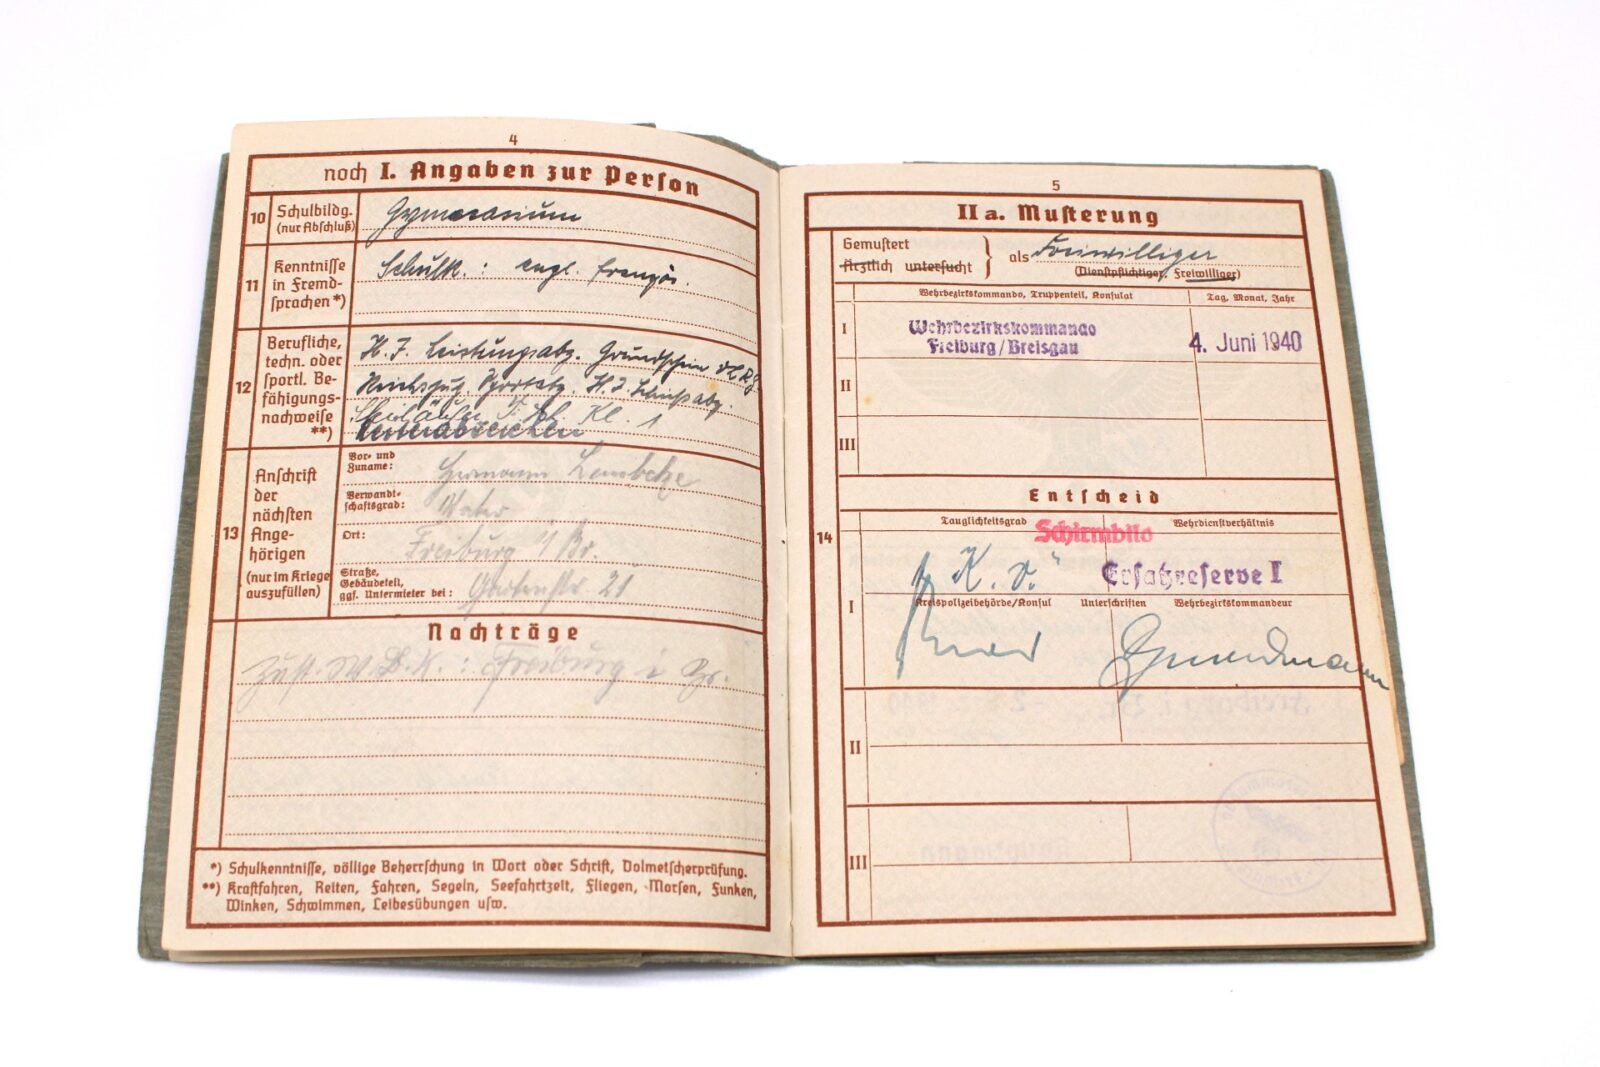 4
noch I. Angaben zur Person
10 Schulbildg. (nur Abschluß)
Gymnasium
11 Kenntnisse in Fremd-sprachen *)
Schulk.: engl. französ.
12 Berufliche, techn. oder sportl. Be-fähigungs-nachweise **)
H. J. Leistungsabz. Grundschein DLRG.
Reichsjug. Sportabz. H. J. Schießabz.
Kl. 1
13 Anschrift der nächsten Ange-hörigen (nur im Kriege auszufüllen)
Vor- und Zuname: Hermann Lembcke
Verwandt-schaftsgrad: Vater
Ort: Freiburg i/Br.
Straße, Gebäudeteil, ggf. Untermieter bei: 21
Nachträge
Zust. W. B. K.: Freiburg i Br.
*) Schulkenntnisse, völlige Beherrschung in Wort oder Schrift, Dolmetscherprüfung.
**) Kraftfahren, Reiten, Fahren, Segeln, Seefahrtzeit, Fliegen, Morsen, Funken,
Winken, Schwimmen, Leibesübungen usw.
5
IIa. Musterung
Gemustert
Ärztlich untersucht } als Freiwilliger
(Dienstpflichtiger, Freiwilliger)
Wehrbezirkskommando, Truppenteil, Konsulat
Tag, Monat, Jahr
I
Wehrbezirkskommando
Freiburg/Breisgau
4. Juni 1940
II
III
Entscheid
14
Tauglichkeitsgrad
Schirmbild
Wehrdienstverhältnis
I
„K. v.“
Ersatzreserve I
Kreispolizeibehörde/Konsul
Unterschriften
Wehrbezirkskommandeur
II
III